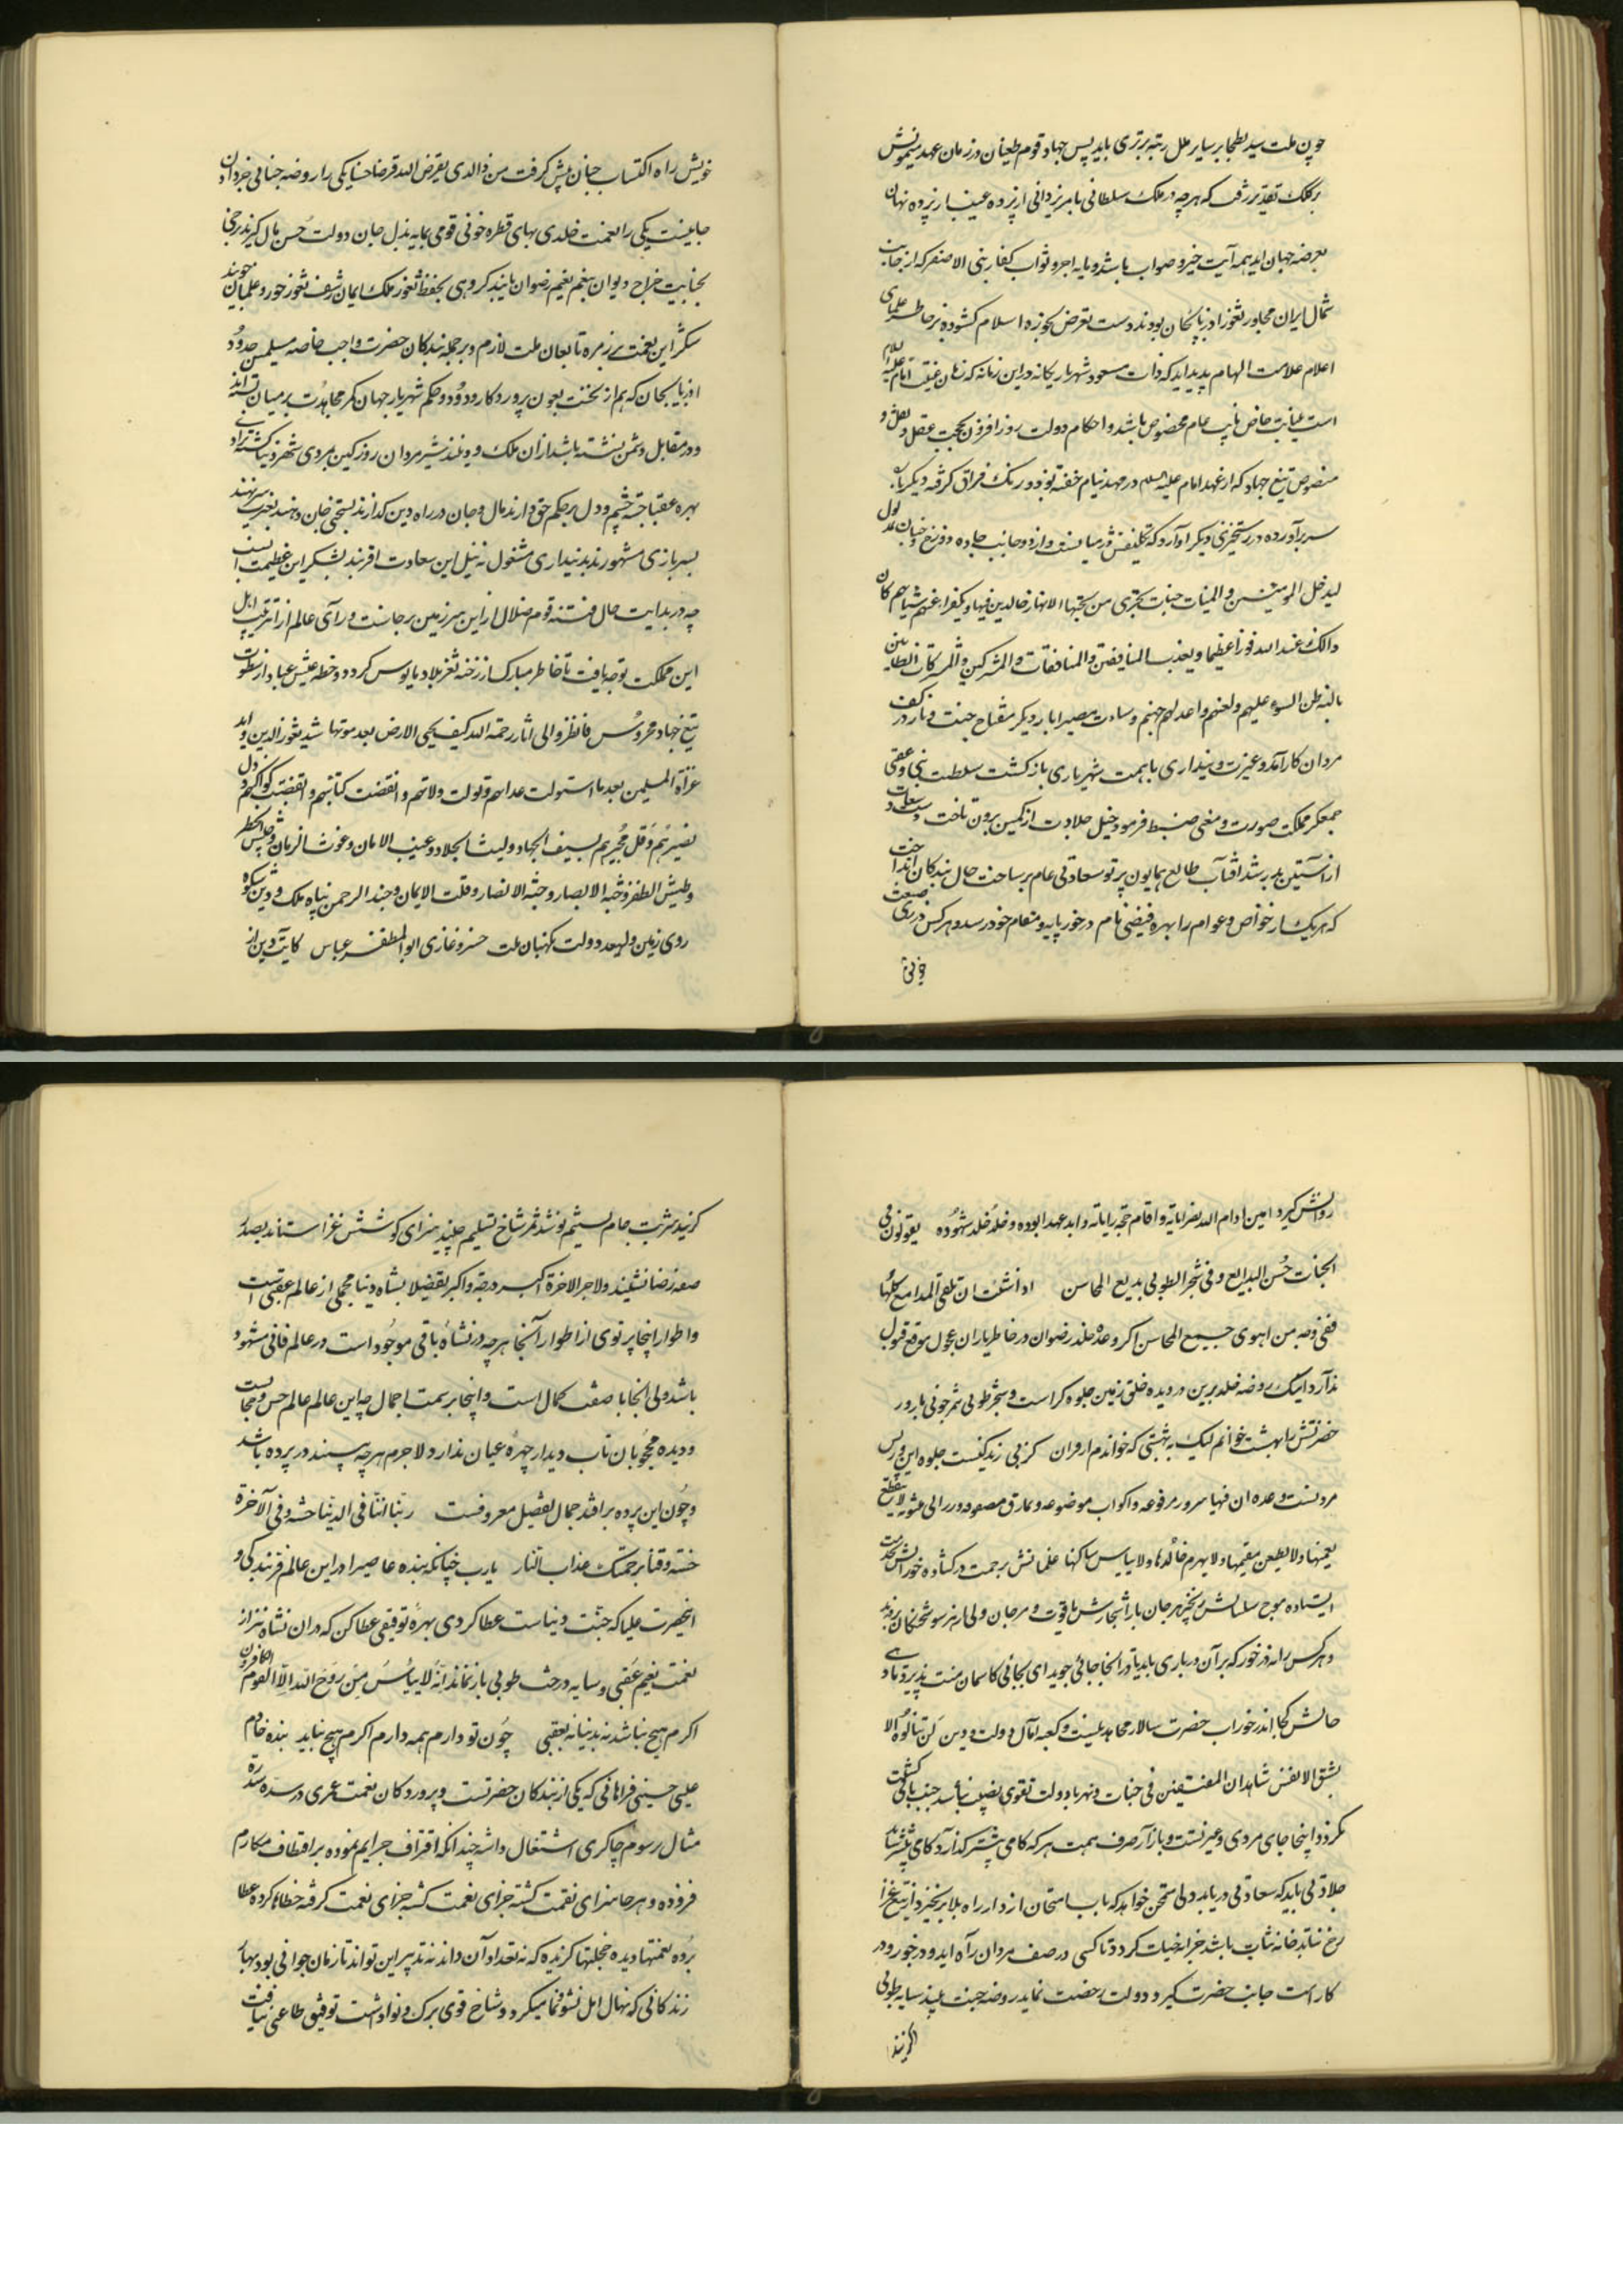 چون ملت سید بطحا بر سایر ملل رتبه برتری باید پس جهاد قوم طغیان در زمان عهد میمونش
بر کلک تقدیر رفت که هرچه در ملک سلطانی بامر یزدانی از پرده عیب بار پرده نهان
بعرضه جهان آید همه آیت خیر و صواب باشد و مایه اجر و ثواب کفار بنی الاصفر که از جانب
شمال ایران مجاور ثغور آذربایجان بودند دست تعرض بحوزه اسلام گشوده بر خاطر علمای
اعلام علامت الهام پدید آید که ذات مسعود شهریار یگانه در این زمانه که زمان غیبت امام علیه السلام
است بنیابت خاص نایب عام مخصوص باشد و احکام دولت روز افزون بحجت عقل و نقل و
منصوص تیغ جهاد که از عهد امام علیه السلام در مهد نیام خفته بود و رنگ فراق گرفته دیگر باره
سر برآورده در رستخیزی دیگر آوارد که تکلیفش در میانست و از دو جانب جاده دوزخ و جنان مدلول
لیدخل المؤمنین و المؤمنات جنات تجری من تحتها الانهار خالدین فیها و یکفر عنهم سیئاتهم و کان
ذالک عند الله فوزا عظیما و یعذب المنافقین و المنافقات و المشرکین و المشرکات الظانین
بالله ظن السوء علیهم و لعنهم و اعد لهم جهنم و ساءت مصیرا بار دیگر مفتاح جنت و نار در کف
مردان کارآمد و غیرت دینداری با همت شهریاری بازگشت سلطنت دنیی و عقبی
جمع کرد مملکت صورت و معنی ضبط فرمود خیل جلادت از کمین برون تاخت دست سعادت
از آستین بدر شد آفتاب طالع همایون پرتو سعادتی عام بر ساحت حال بندگان انداخت
که هر یک از خواص و عوام را بهره فیضی تام در خور پایه و مقام خود رسد و هر کس در بیع
خویش
خویش راه اکتساب جنان پیش گرفت من ذالذی یقرض الله قرضا حسنا یکی را روضه جنانی جزء دادن
جانیست یکی را نعمت خلدی بهای قطره خونی قومی بمایه بذل جان دولت حسن مآل گیرند برخی
بجنایت خراج دیوان نجم نعیم رضوان یابند گروهی بحفظ ثغور ملک ایمان رشف ثغور حور و غلمان جویند
شکر این نعمت بر زمره تابعان ملت لازم و بر جمله بندگان حضرت واجب خاصه مسلمین حدود
آذربایجان که هم از نخست بعون پروردگار ودود و حکم شهریار جهان کمر مجاهدت بر میان بسته اند
و در مقابل دشمن نشسته باشد از آن ملک و بوند شیر مردان روز کین بمردی شهره نیاکشته نژادی
بهره عقبا جسته چشم و دل بر حکم حق دارند مال و جان در راه دین گذارند بسختی جان دهند بحرب سر نهند
بسربازی مشهورند بدینداری مشغول نه نیل این سعادت اقربند بشکر این عظیمت انسب
چه در بدایت حال فتنه قوم ضلال از این سرزمین برخاست و رآی عالم از آراء ترتیب اهل
این مملکت توجه یافت تا خاطر مبارک از رخنه ثغر بلاد مایوس گردد و خطه عیش عباد از سطوت
تیغ جهاد محروس فانظروا الی اثار رحمة الله کیف یحیی الارض بعد موتها شید ثغور الدین و اید
غزاة المسلمین بعد ما استولت عداهم و تولت ولاتهم و انقضت کتائبهم و انقضت کواکبهم و ذل
نصیرهم و قل مجیرهم بسیف الجهاد و لیث الجلاد و غیث الامان و غوث الزمان و جیش الخطر
و طیش الظفر و خبة الابصار و جنة الانصار و قلت الایمان و جند الرحمن پناه ملک و دین شکوه
روی زمین ولیعهد دولت نگهبان ملت خسرو غازی ابوالمظفر عباس کایت دین از
روانش گیرد امین ادام الله نصرآیاته و اقام حجة رایاته و ابد عهد ابوده و خلد خلد شهوده یقولون فی
الجنات حسن البدایع و فی شجر الطوبی بدیع المحاسن اذا شئت ان تلقی المدامع کلها
ففی وجه من اهوی جمیع المحاسن اگر وعده خلد رضوان در خاطر یاران عجول موقع قبول
ندارد اینک روضه خلد برین در دیده خلق زمین جلوه گر است و شجر طوبی ثمر جونی بارور
حضرتش را بهشت خوانم لیک نه بهشتی که خواندم از قران کز پی زندگیست جلوه این و پس
مردنست وعده آن فیها سرر مرفوعه و اکواب موضوعه و نمارق مصفوفه و زرابی مبثوثه لا ینقطع
نعیمها و لا یظعن مقیمها و لا یهرم خالدها و لا یبأس ساکنها غلمانش برحمت در گشاده حورانش بخدمت
ایستاده موج سلسالش بر خیزد مرجان بار اشجارش یاقوت و مرجان ولی از هر سو شحنگان بردند
و هر کس را نه در خور که بر آن در باری باید یا در آنجا جائی جوید ای بجائی کاسمان منت پذیرد تا دهی
جانش کجا اندر خور آب حضرت سالار مجاهدینست و کعبه آمال دولت و دین لن تنالوه الا
بشق الانفس شاهدان المتقین فی جنات و نهر با دولت تقوی نصیب نباشد جنب باقی گشت
نگردد اینجا جای مردی و غیرتست و بازار صرف همت هر که گامی پیشتر گذارد کامی بیشتر یابد
جلادتی باید که سعادتی دریابد دلی ممتحن خواهد که باب امتحان آرد از راه بلا برنخیزد از تیغ غزا
رخ نتابد خانه شتاب باشد جزانه خیات گردد تا کسی در صف مردان راه آید و در خور و در
کار است جانب حضرت گیرد و دولت رخصت نماید روضه جنت بیند سایه طوبی
گزیند
گزیند شربت جام تسنیم نوشد ثمر شاخ تسلیم چیند سزای کوشش غزا ستاند بصدر
صفه رضا نشیند و للاخرة اکبر درجة و اکبر تفضیلا نشاه دنیا مجملی از عالم عقبی است
و اطوار اینجا پرتوی از اطوار آنجا هرچه در نشاه باقی موجود است در عالم فانی مشهود
باشد ولی آنجا با صفت کمال است و اینجا بر سمت اجمال چه این عالم عالم حس و مجاست
و دیده محجوبان تاب دیدار چهره عیان ندارد لاجرم هرچه بینند در پرده باشد
و چون این پرده برافتد جمال تفصیل معروفست ربنا اتنا فی الدنیا حسنة و فی الآخرة
حسنة و قنا برحمتک عذاب النار یارب چنانکه بنده عاصی را در این عالم فر بندگی و
اینحضرت علیا که جنت دنیاست عطا کردی بهره توفیقی عطا کن که در آن نشاه نیز از
نعمت نعیم عقبی و سایه درخت طوبی باز نماند انه لا ییأس من روح الله الا القوم الکافرون
اگرم هیچ نباشد نه بدنیا نه بعقبی چون تو دارم همه دارم اگرم هیچ نباید بنده خادم
عیسی حسینی فراهانی که یکی از بندگان حضرتست و پروردگان نعمت عمری در سده سدره
مثال رسوم چاکری اشتغال داشته چندانکه اقتراف جرایم نموده بر اقتطاف مکارم
فزوده و هر جا سزای نقمت گشته جزای نعمت گشته جزای نعمت گرفته خطاها کرده عطا
برده نعمتها دیده خجلتها گزیده که نه تعداد آن داند نه تدبیر این تواند تا زمان جوانی بود بهار
زندگانی که نهال امل نشو و نما میکرد و شاخ قوی برگ و نوا داشت توفیق طاعتی نیافت